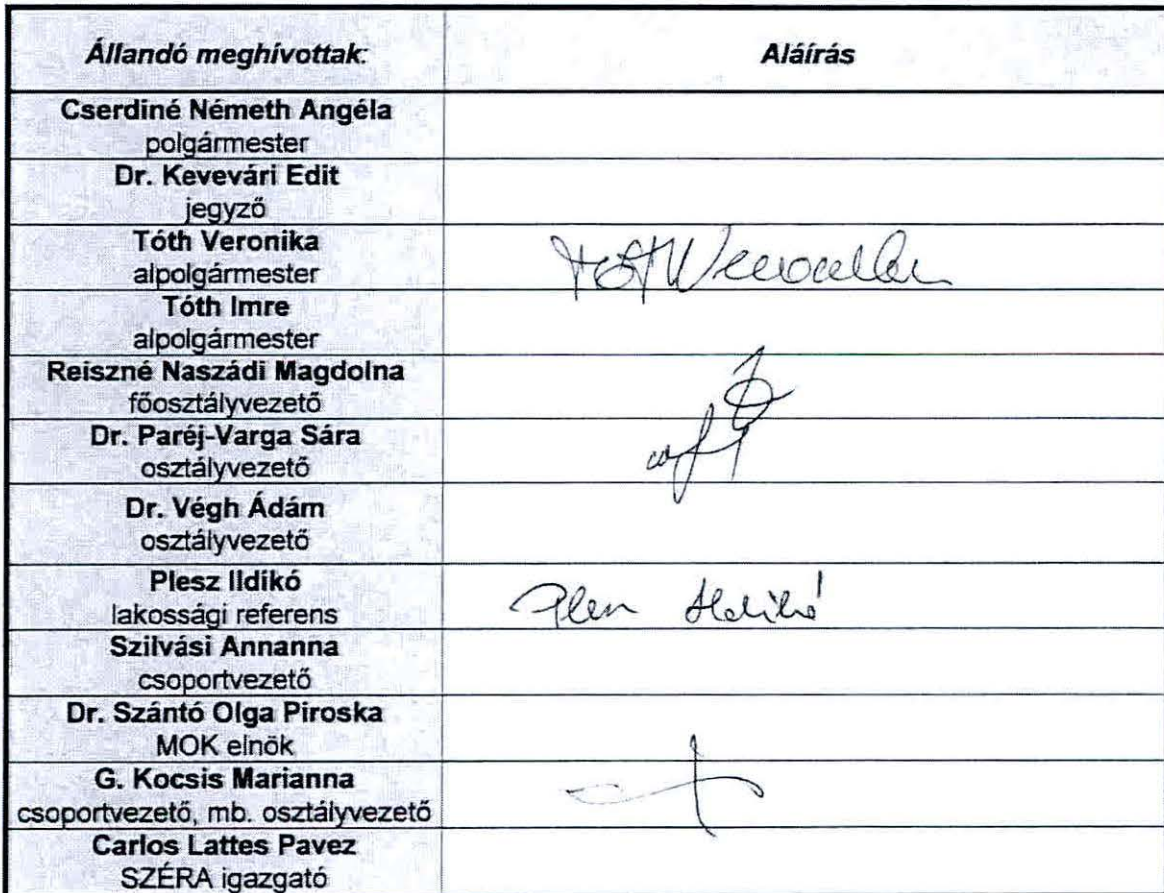 Állandó meghívottak: Aláírás
Cserdiné Németh Angéla
polgármester
Dr. Kevevári Edit
jegyző
Tóth Veronika
alpolgármester
Tóth Imre
alpolgármester
Reiszné Naszádi Magdolna
főosztályvezető
Dr. Paréj-Varga Sára
osztályvezető
Dr. Végh Ádám
osztályvezető
Plesz Ildikó
lakossági referens
Szilvási Annanna
csoportvezető
Dr. Szántó Olga Piroska
MOK elnök
G. Kocsis Marianna
csoportvezető, mb. osztályvezető
Carlos Lattes Pavez
SZÉRA igazgató